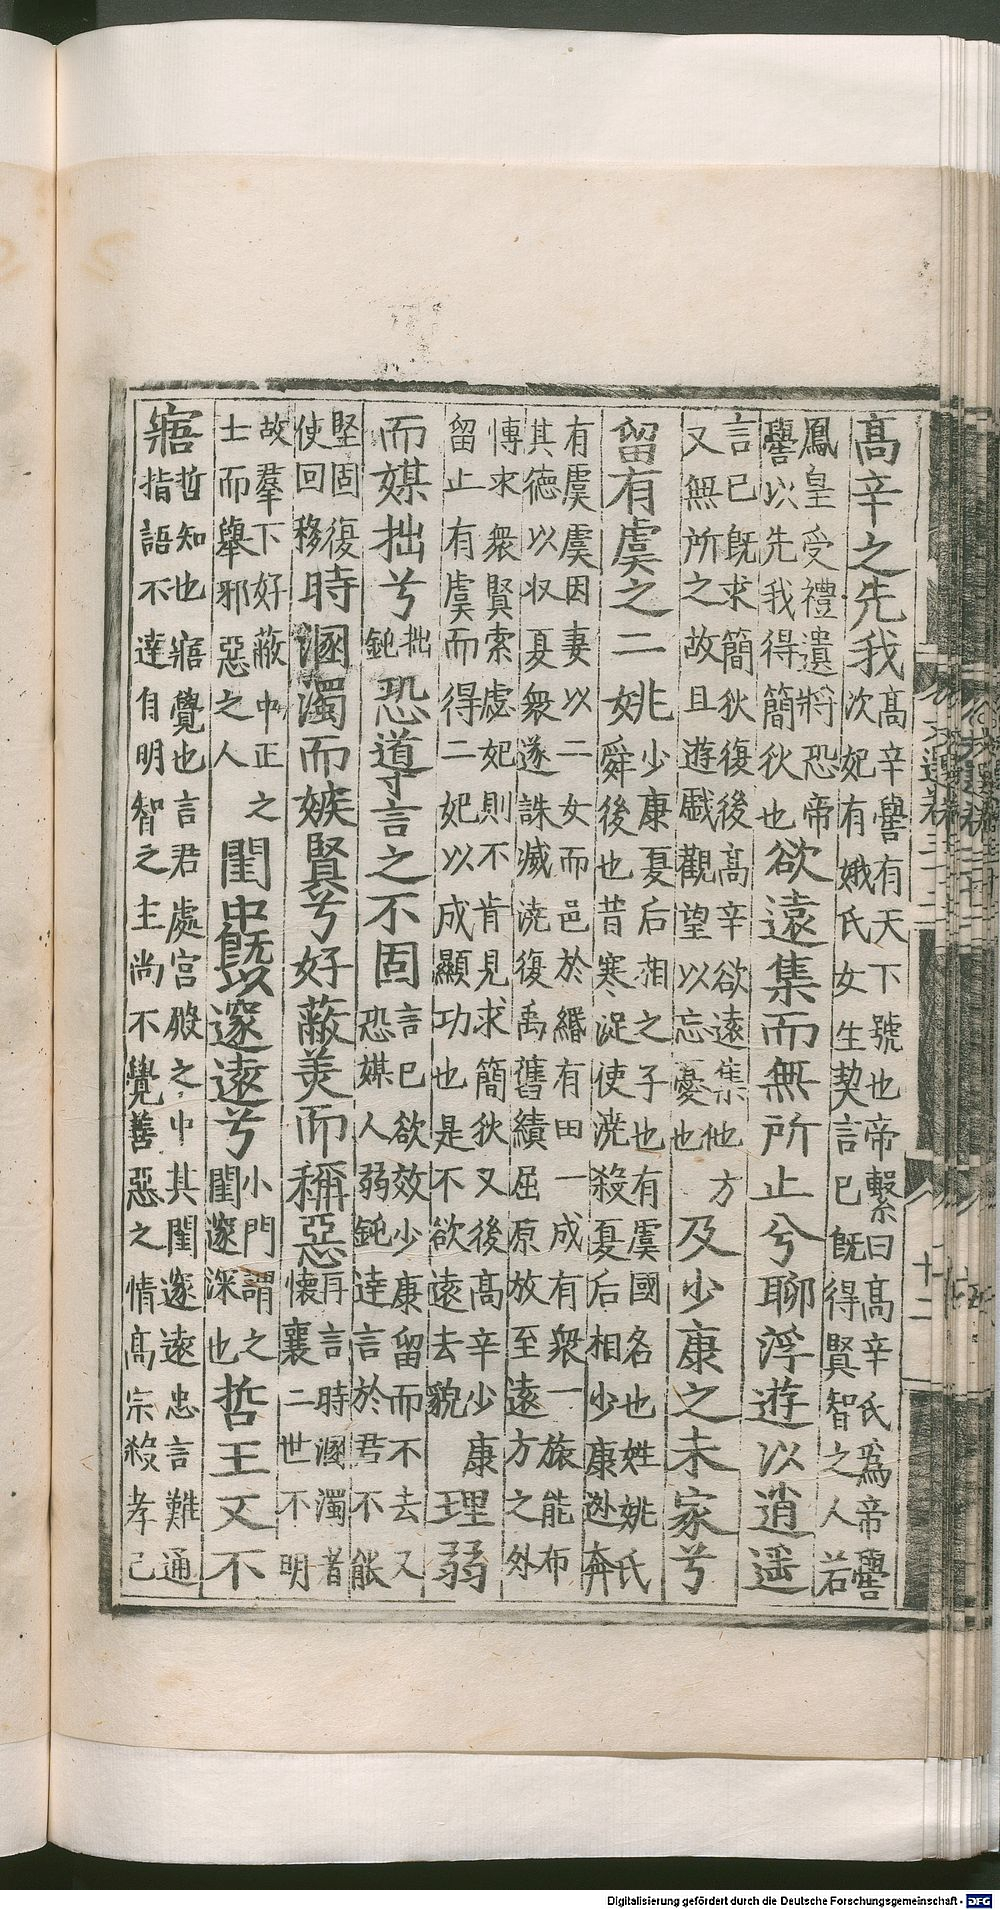 高辛之先我高辛嚳有天下號也帝繫曰高辛氏爲帝嚳
次妃有娀氏女生契言已旣得賢智之人若
鳳皇受禮遺將恐帝
嚳以先我得簡狄也欲遠集而無所止兮聊浮遊以逍遥
言已旣求簡狄復後高辛欲遠集他方
又無所之故且遊戲觀望以忘憂也及少康之未家兮
留有虞之二姚少康夏后相之子也有虞國名也姓姚氏
舜後也昔寒浞使澆殺夏后相少康逃奔
有虞虞因妻以二女而邑於緡有田一成有衆一旅能布
其德以収夏衆遂誅滅澆復禹舊績屈原放至遠方之外
博求衆賢索虙妃則不肯見求簡狄又後高辛少康
留止有虞而得二妃以成顯功也是不欲遠去貌理弱
而媒拙兮拙
鈍恐導言之不固言已欲效少康留而不去又
恐媒人弱鈍達言於君不能
堅固復
使回移時溷濁而嫉賢兮好蔽美而稱惡再言時溷濁者
懷襄二世不明
故羣下好蔽中正之
士而舉邪惡之人閨中旣以邃遠兮小門謂之
閨邃深也哲王又不
寤哲知也寤覺也言君處宫殿之中其閨邃遠忠言難通
指語不達自明智之主尚不覺善惡之情高宗殺孝己
十二
Digitalisierung gefördert durch die Deutsche Forschungsgemeinschaft - DFG